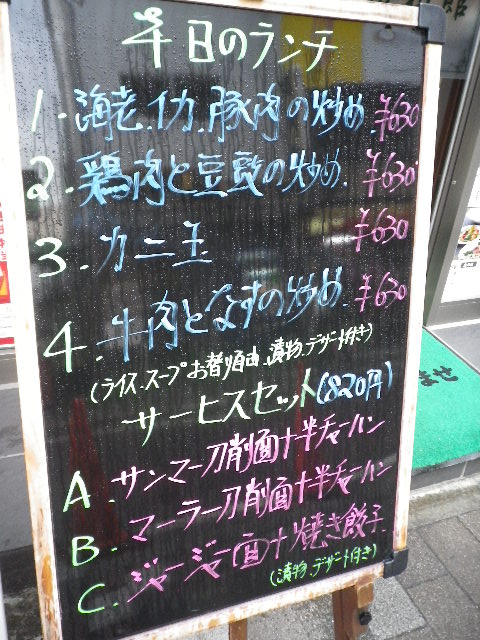 平日のランチ
1. 海老.イカ.豚肉の炒め ¥630
2. 鶏肉と豆鼓の炒め. ¥630
3. カニ玉 ¥630
4. 牛肉となすの炒め. ¥630
(ライス.スープお替り自由.漬物.デザート付き)
サービスセット(820円)
A. サンマー刀削面+半チャーハン
B. マーラー刀削面+半チャーハン
C. ジャージャー面+焼き餃子
(漬物.デザート付き)
ませ